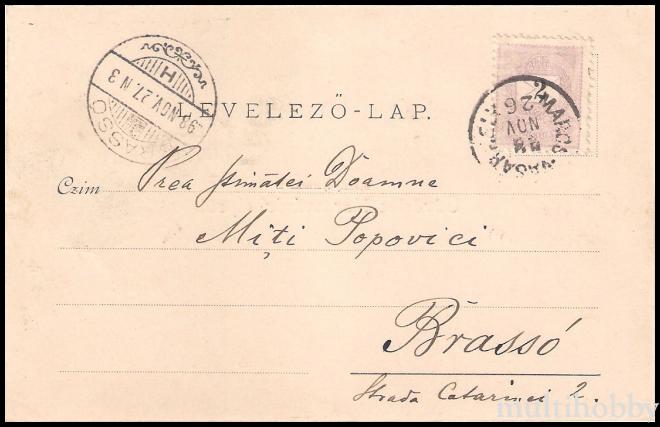 LEVELEZŐ-LAP.
BRASSÓ
98 NOV. 27. N 3
H
MAROS-VÁSÁRHELY
98
NOV
26
Czim Prea stimatei Doamne
Miţi Popovici
Brassó
Strada Catarinei 2.
multihobby